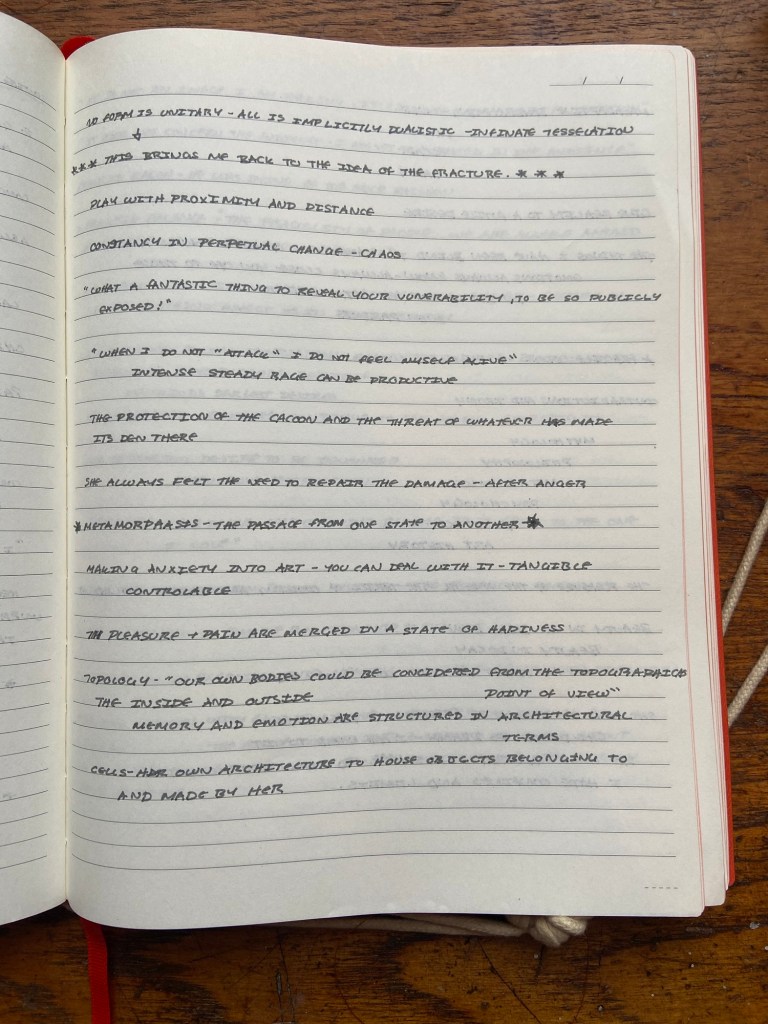 NO FORM IS UNITARY - ALL IS IMPLICITLY DUALISTIC - INFINATE TESSELATION
↓
*** THIS BRINGS ME BACK TO THE IDEA OF THE FRACTURE. ***
PLAY WITH PROXIMITY AND DISTANCE
CONSTANCY IN PERPETUAL CHANGE - CHAOS
"WHAT A FANTASTIC THING TO REVEAL YOUR VUNERABILITY, TO BE SO PUBLICLY
EXPOSED!"
"WHEN I DO NOT "ATTACK" I DO NOT FEEL MYSELF ALIVE"
INTENSE STEADY RAGE CAN BE PRODUCTIVE
THE PROTECTION OF THE CACOON AND THE THREAT OF WHATEVER HAS MADE
ITS DEN THERE
SHE ALWAYS FELT THE NEED TO REPAIR THE DAMAGE - AFTER ANGER
*METAMORPHASIS - THE PASSAGE FROM ONE STATE TO ANOTHER *
MAKING ANXIETY INTO ART - YOU CAN DEAL WITH IT - TANGIBLE
CONTROLABLE
PLEASURE + PAIN ARE MERGED IN A STATE OF HAPINESS
TOPOLOGY - "OUR OWN BODIES COULD BE CONCIDERED FROM THE TOPOGRAPHICAL
THE INSIDE AND OUTSIDE POINT OF VIEW"
MEMORY AND EMOTION ARE STRUCTURED IN ARCHITECTURAL
TERMS
CELLS - HER OWN ARCHITECTURE TO HOUSE OBJECTS BELONGING TO
AND MADE BY HER